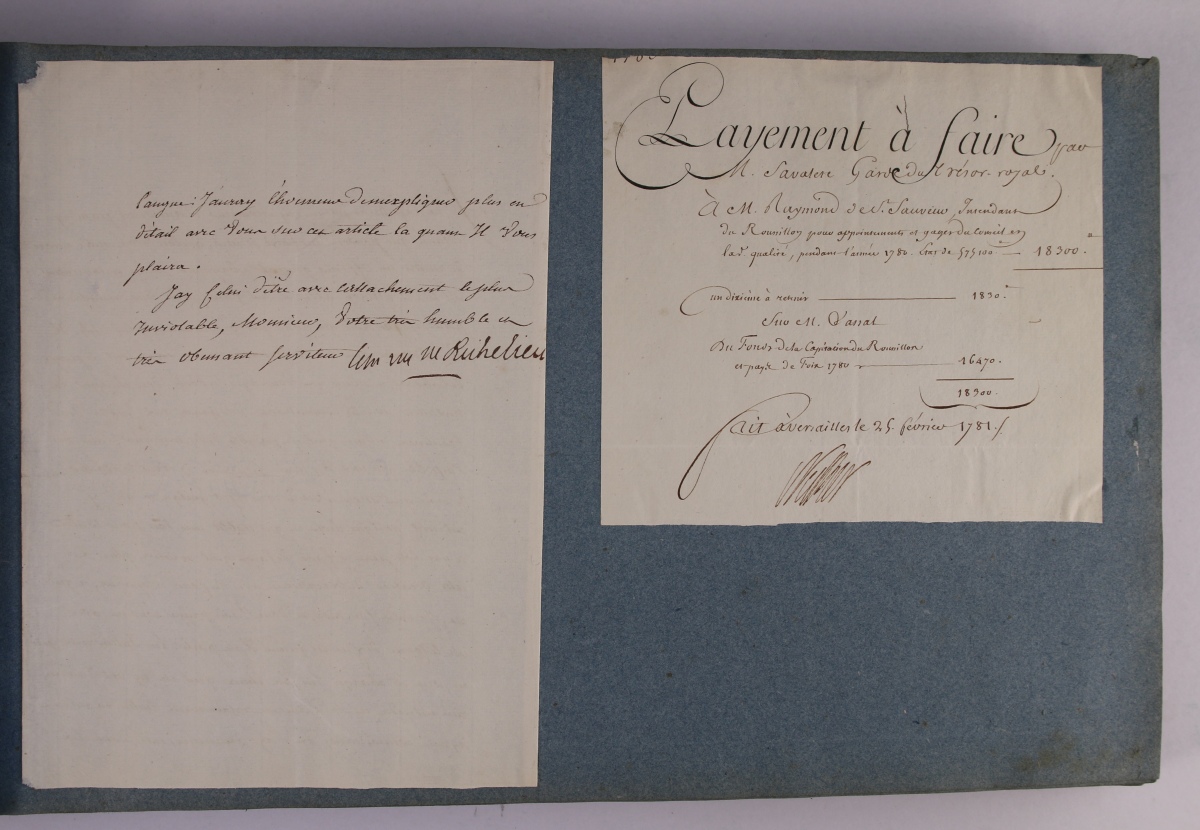 langue: J'auray l'honneur de m'expliquer plus en
détail avec Vous sur cet article la quand Il Vous
plaira.
Jay Celui d'être avec l'attachement le plus
Inviolable, Monsieur, Votre très humble et
très obeissant serviteur Richelieu
Payement à faire par
M. Savalete Garde du trésor royal.
À M. Raymond de St. Sauveur, Intendant
du Roussillon pour appointements et gages du Conseil en
lad. qualité, pendant l'année 1780. Etat de 575100 — 18300.
un dixième à retenir — 1830.
Sur M. Vassal
Du Fonds de la Capitation du Roussillon
et pays de Foix 1780 — 16470.
18300.
Fait à Versailles le 25. février 1781.